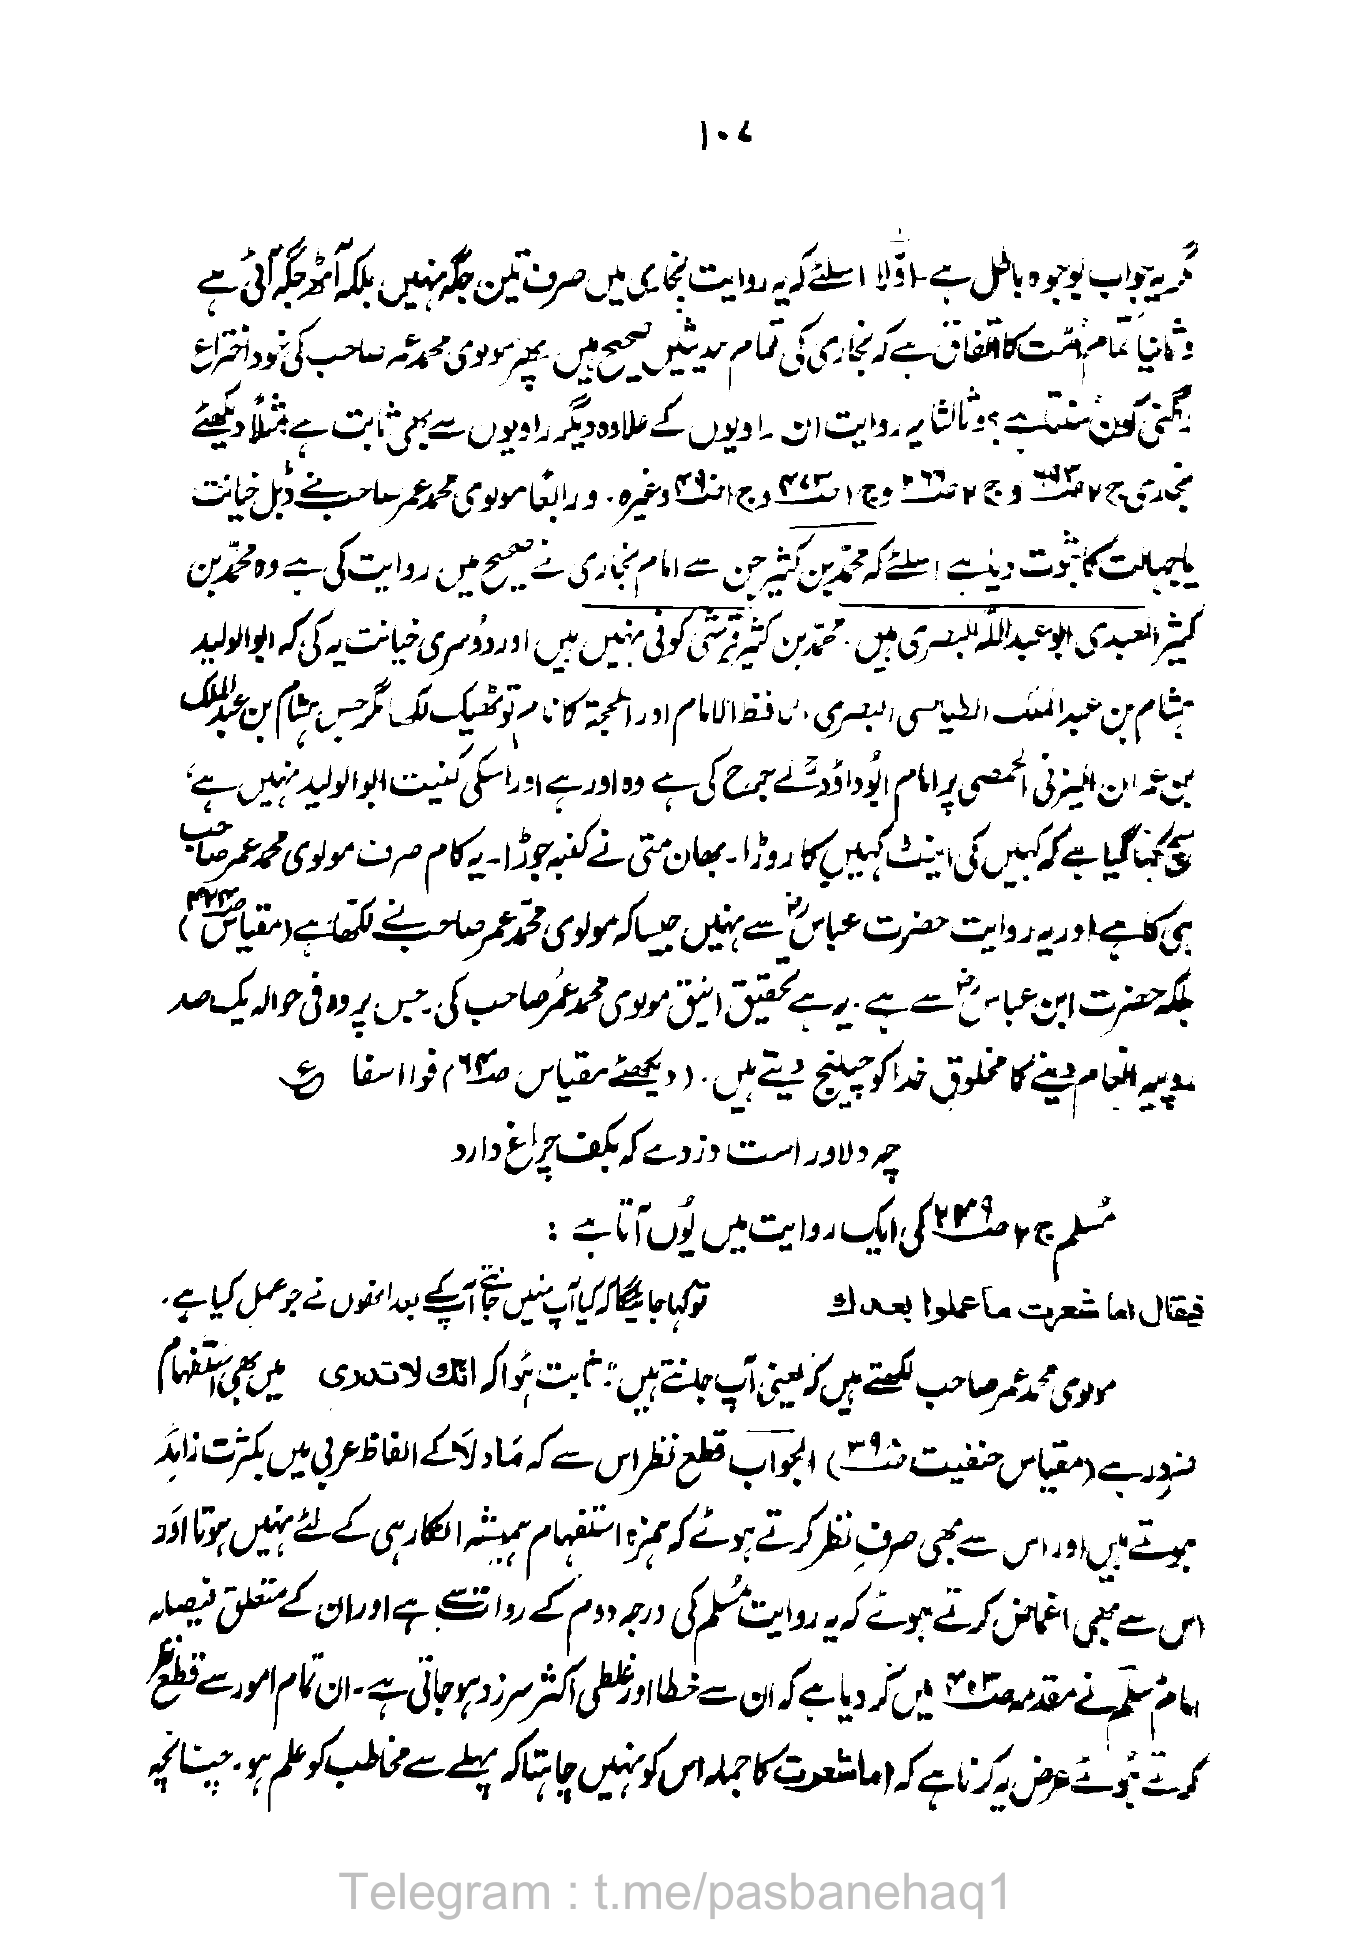 ۱۰۷
مگر یہ جواب بوجوہ باطل ہے۔ اوّلاً اسلئے کہ یہ روایت بخاری میں صرف تین جگہ نہیں بلکہ آٹھ جگہ آئی ہے
و ثانیاً تمام اُمّت کا اتفاق ہے کہ بخاری کی تمام حدیثیں صحیح ہیں پھر مولوی محمد عمر صاحب کی خود اختراع
کون سنتا ہے؟ و ثالثاً یہ روایت ان راویوں کے علاوہ دیگر راویوں سے بھی ثابت ہے مثلاً دیکھئے
بخاری ج ۲ ص۶۹۳ و ج ۲ ص۹۶۶ و ج ۱ ص۴۷۳ و ج ۱ ص۴۹۰ وغیرہ۔ و رابعًا مولوی محمد عمر صاحب نے ڈبل خیانت
یا جہالت کا ثبوت دیا ہے اسلئے کہ محمّد بن کثیر جن سے امام بخاری نے صحیح میں روایت کی ہے وہ محمّد بن
کثیر العبدی ابو عبداللہ البصری ہیں۔ محمّد بن کثیر قرشی کوفی نہیں ہیں اور دُوسری خیانت یہ کی کہ ابوالولید
ہشام بن عبدالملک الطیالسی البصری، حافظ الامام اور الحجۃ کا نام تو ٹھیک لکھا مگر جس ہشام بن عبدالملک
بن عمران الیزنی الحمصی پر امام ابُوداؤدؒ نے جرح کی ہے وہ اور ہے اور اسکی کنیت ابوالولید نہیں ہے،
سچ کہا گیا ہے کہ کہیں کی اینٹ کہیں کا روڑا۔ بھان متی نے کنبہ جوڑا۔ یہ کام صرف مولوی محمد عمر صاحب
ہی کا ہے اور یہ روایت حضرت عباسؓ سے نہیں جیسا کہ مولوی محمّد عمر صاحب نے لکھا ہے (مقیاس ص۴۷۴)
بلکہ حضرت ابن عباسؓ سے ہے۔ یہ ہے تحقیق انیق مولوی محمد عمُر صاحب کی۔ جس پر وہ فی حوالہ یک صد
روپیہ انعام دینے کا مخلوقِ خدا کو چیلنج دیتے ہیں۔ (دیکھئے مقیاس ص۶۴) فوا اسفا ع
چہ دلاور است دزدے کہ بکف چراغ دارد
مُسلم ج ۲ ص۲۴۹ کی ایک روایت میں یُوں آتا ہے :
فیقال اما شعرت ما عملوا بعدك تو کہا جائیگا کہ کیا آپ نہیں جانتے آپ کے بعد انھوں نے جو عمل کیا ہے۔
مولوی محمد عمر صاحب لکھتے ہیں کہ یعنی آپ جانتے ہیں: ثابت ہُوا کہ انك لا تدری میں بھی استفہام
ضرور ہے (مقیاس حنفیت ص۳۹۰) الجواب قطع نظر اس سے کہ مَا و لَا کے الفاظ عربی میں بکثرت زاید
ہوتے ہیں اور اس سے بھی صرفِ نظر کرتے ہوئے کہ ہمزہ استفہام ہمیشہ انکار ہی کے لئے نہیں ہوتا اور
اس سے بھی اغماض کرتے ہوئے کہ یہ روایت مُسلم کی درجہ دوم کے رواۃ سے ہے اور ان کے متعلق فیصلہ
امام مُسلمؒ نے مقدمہ ص۳،۴ میں کر دیا ہے کہ ان سے خطا اور غلطی اکثر سرزد ہو جاتی ہے۔ ان تمام امور سے قطع نظر
کرتے ہُوئے عرض یہ کرنا ہے کہ (اما شعرت کا جملہ اس کو نہیں چاہتا کہ پہلے سے مخاطب کو علم ہو۔ چنانچہ
Telegram : t.me/pasbanehaq1